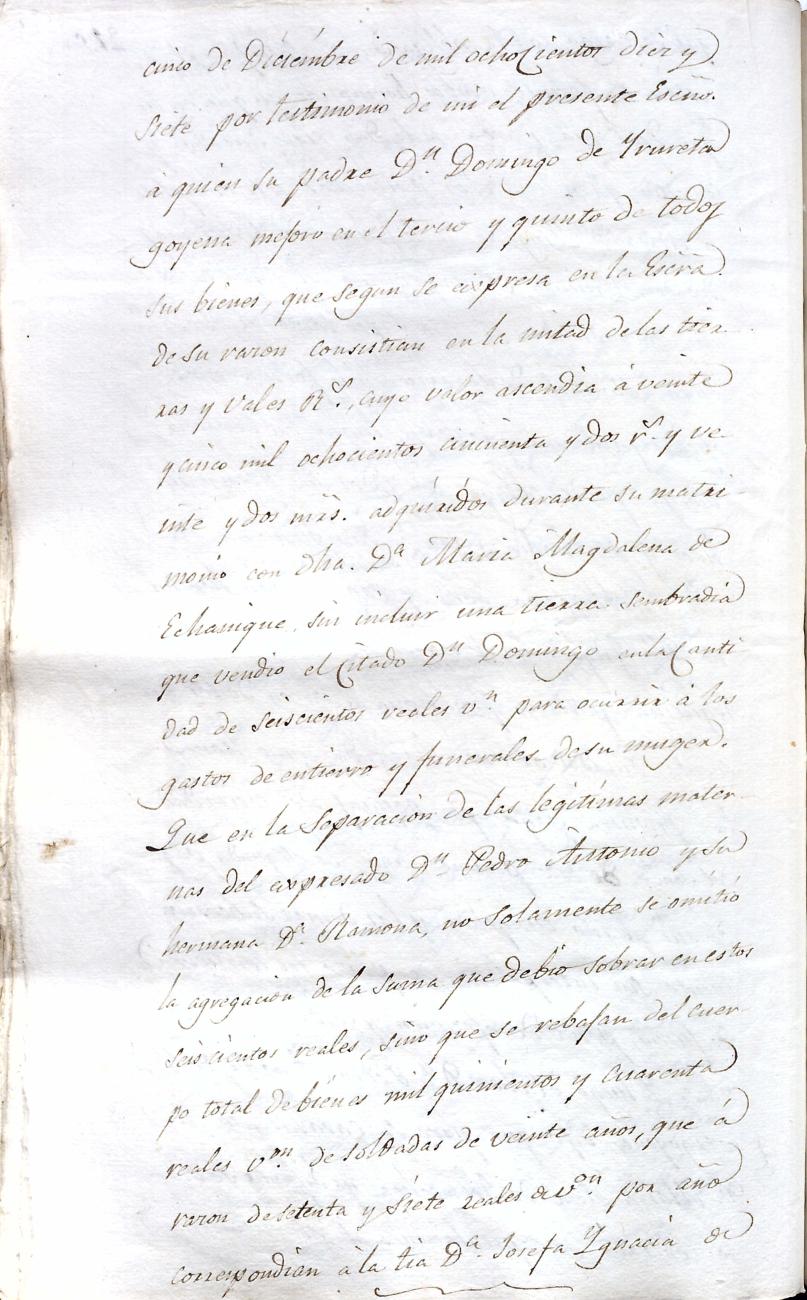 cinco de Diciembre de mil ochocientos diez y
siete por testimonio de mi el presente Escño.
à quien su padre Dⁿ Domingo de Yrureta
goyena mejoro en el tercio y quinto de todos
sus bienes, que segun se expresa en la Escrã.
de su razon consistian en la mitad de las tier-
ras y Vales Rˢ., cuyo valor ascendia à veinte
y cinco mil ochocientos cincuenta y dos rˢ. y ve-
inte y dos mrs. adquiridos durante su matri-
monio con dha. Dª Maria Magdalena de
Echanique, sin incluir una tierra sembradia
que vendio el citado Dⁿ Domingo en la Canti-
dad de seiscientos reales vⁿ para ocurrir à los
gastos de entierro y funerales de su muger.
Que en la separacion de las legitimas mater-
nas del expresado Dⁿ Pedro Antonio y su
hermana Dª. Ramona, no solamente se omitió
la agregacion de la suma que debio sobrar en estos
seis cientos reales, sino que se rebajan del cuer-
po total de bienes mil quinientos y cuarenta
reales vᵒⁿ. de soldadas de veinte años, que à
razon de setenta y siete reales de vᵒⁿ. por año
correspondian à la tia Dª. Josefa Ygnacia de